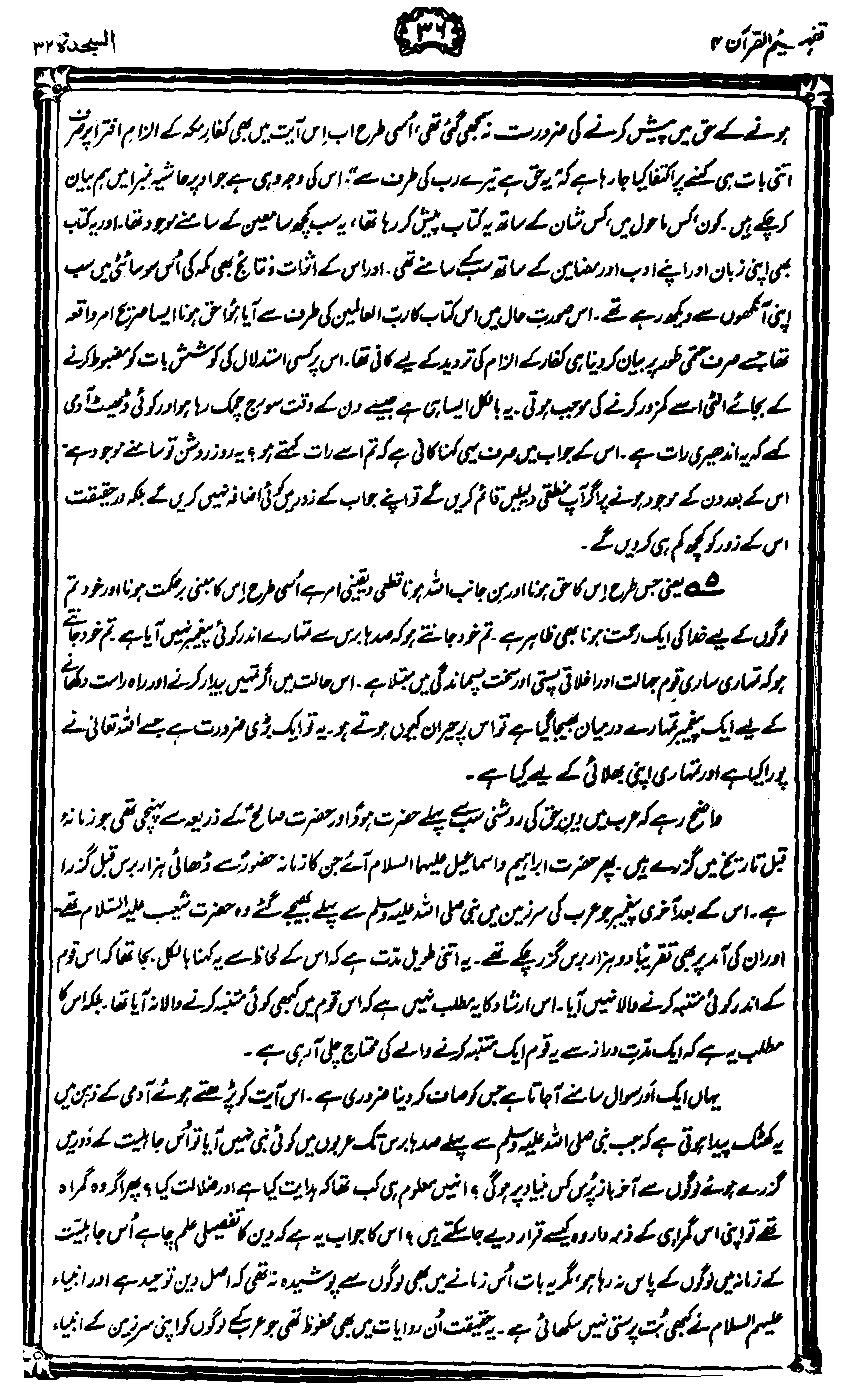 تفہیم القرآن ۴
۳۶
السجدۃ ۳۲
ہونے کے حق میں پیش کرنے کی ضرورت نہ سمجھی گئی تھی، اُسی طرح اب اِس آیت میں بھی کفارِ مکہ کے الزامِ افترا پر صرف
اتنی بات ہی کہنے پر اکتفا کیا جا رہا ہے کہ "یہ حق ہے تیرے رب کی طرف سے"۔ اس کی وجہ وہی ہے جو اوپر حاشیہ نمبر ا میں ہم بیان
کر چکے ہیں۔ کون، کس ماحول میں، کس شان کے ساتھ یہ کتاب پیش کر رہا تھا، یہ سب کچھ سامعین کے سامنے موجود تھا۔ اور یہ کتاب
بھی اپنی زبان اور اپنے ادب اور مضامین کے ساتھ سب کے سامنے تھی۔ اور اس کے اثرات و نتائج بھی مکہ کی اُس سوسائٹی میں سب
اپنی آنکھوں سے دیکھ رہے تھے۔ اس صورتِ حال میں اس کتاب کا ربّ العالمین کی طرف سے آیا ہُوا حق ہونا ایسا صریح امرِ واقعہ
تھا جسے صرف حتمی طور پر بیان کر دینا ہی کفار کے الزام کی تردید کے لیے کافی تھا۔ اس پر کسی استدلال کی کوشش بات کو مضبوط کرنے
کے بجائے الٹی اسے کمزور کرنے کی موجب ہوتی۔ یہ بالکل ایسا ہی ہے جیسے دن کے وقت سورج چمک رہا ہو اور کوئی ڈھیٹ آدمی
کہے کہ یہ اندھیری رات ہے۔ اس کے جواب میں صرف یہی کہنا کافی ہے کہ تم اسے رات کہتے ہو؟ یہ روزِ روشن تو سامنے موجود ہے۔
اس کے بعد دن کے موجود ہونے پر اگر آپ منطقی دلیلیں قائم کریں گے تو اپنے جواب کے زور میں کوئی اضافہ نہیں کریں گے بلکہ درحقیقت
اس کے زور کو کچھ کم ہی کر دیں گے۔
۵ یعنی جس طرح اِس کا حق ہونا اور من جانب اللہ ہونا قطعی و یقینی امر ہے اُسی طرح اِس کا مبنی بر حکمت ہونا اور خود تم
لوگوں کے لیے خدا کی ایک رحمت ہونا بھی ظاہر ہے۔ تم خود جانتے ہو کہ صدہا برس سے تمہارے اندر کوئی پیغمبر نہیں آیا ہے۔ تم خود جانتے
ہو کہ تمہاری ساری قوم جہالت اور اخلاقی پستی اور سخت پسماندگی میں مبتلا ہے۔ اس حالت میں اگر تمہیں بیدار کرنے اور راہِ راست دکھانے
کے لیے ایک پیغمبر تمہارے درمیان بھیجا گیا ہے تو اس پر حیران کیوں ہوتے ہو۔ یہ تو ایک بڑی ضرورت ہے جسے اللہ تعالیٰ نے
پورا کیا ہے اور تمہاری اپنی بھلائی کے لیے کیا ہے۔
واضح رہے کہ عرب میں دینِ حق کی روشنی سب سے پہلے حضرت ہودؑ اور حضرت صالحؑ کے ذریعہ سے پہنچی تھی جو زمانۂ
قبل تاریخ میں گزرے ہیں۔ پھر حضرت ابراہیم و اسماعیل علیہما السلام آئے جن کا زمانہ حضورؐ سے ڈھائی ہزار برس قبل گزرا
ہے۔ اس کے بعد آخری پیغمبر جو عرب کی سرزمین میں نبی صلی اللہ علیہ وسلم سے پہلے بھیجے گئے وہ حضرت شعیب علیہ السّلام تھے۔
اور ان کی آمد پر بھی تقریباً دو ہزار برس گزر چکے تھے۔ یہ اتنی طویل مدّت ہے کہ اس کے لحاظ سے یہ کہنا بالکل بجا تھا کہ اس قوم
کے اندر کوئی متنبہ کرنے والا نہیں آیا۔ اس ارشاد کا یہ مطلب نہیں ہے کہ اس قوم میں کبھی کوئی متنبہ کرنے والا نہ آیا تھا۔ بلکہ اس کا
مطلب یہ ہے کہ ایک مدتِ دراز سے یہ قوم ایک متنبہ کرنے والے کی محتاج چلی آ رہی ہے۔
یہاں ایک اَور سوال سامنے آ جاتا ہے جس کو صاف کر دینا ضروری ہے۔ اس آیت کو پڑھتے ہوئے آدمی کے ذہن میں
یہ کھٹک پیدا ہوتی ہے کہ جب نبی صلی اللہ علیہ وسلم سے پہلے صدہا برس تک عربوں میں کوئی نبی نہیں آیا تو اُس جاہلیت کے دَور میں
گزرے ہوئے لوگوں سے آخر باز پُرس کس بنیاد پر ہو گی؟ انہیں معلوم ہی کب تھا کہ ہدایت کیا ہے اور ضلالت کیا؟ پھر اگر وہ گمراہ
تھے تو اپنی اس گمراہی کے ذمہ دار وہ کیسے قرار دیے جا سکتے ہیں؟ اس کا جواب یہ ہے کہ دین کا تفصیلی علم چاہے اُس جاہلیّت
کے زمانہ میں لوگوں کے پاس نہ رہا ہو، مگر یہ بات اُس زمانے میں بھی لوگوں سے پوشیدہ نہ تھی کہ اصل دین توحید ہے اور انبیاء
علیہم السلام نے کبھی بُت پرستی نہیں سکھائی ہے۔ یہ حقیقت اُن روایات میں بھی محفوظ تھی جو عرب کے لوگوں کو اپنی سرزمین کے انبیاء